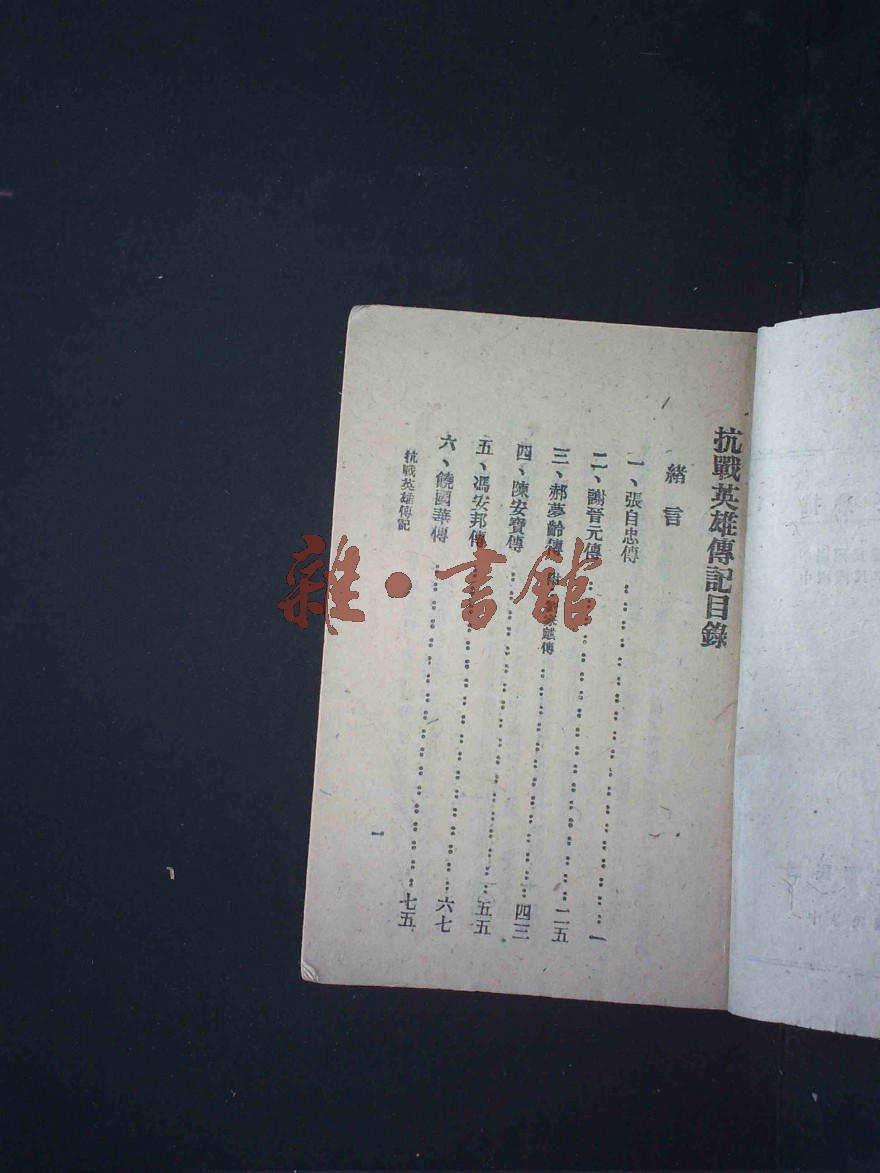 抗戰英雄傳記目錄
緒言
一、張自忠傳 一
二、謝晉元傳 二五
三、郝夢齡傳 附 傳 四三
四、陳安寶傳 五五
五、馮安邦傳 六七
六、饒國華傳 七五
抗戰英雄傳記
一
雜·書館